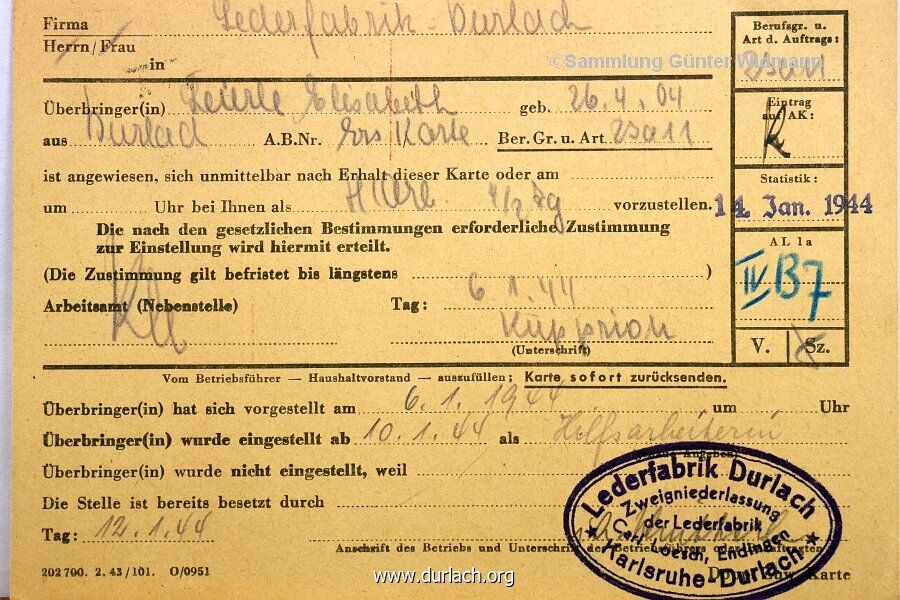 Firma Lederfabrik-Durlach
Herrn/Frau
in
Berufsgr. u.
Art d. Auftrags:
23a11
©Sammlung Günter Widmann
Überbringer(in) Zeierle Elisabeth geb. 26.4.04
aus Durlach A.B.Nr. Ers Karte Ber. Gr. u. Art 23a11
Eintrag
auf AK:
ist angewiesen, sich unmittelbar nach Erhalt dieser Karte oder am
um Uhr bei Ihnen als 1/2 Tg vorzustellen.
Statistik:
14. Jan. 1944
Die nach den gesetzlichen Bestimmungen erforderliche Zustimmung
zur Einstellung wird hiermit erteilt.
(Die Zustimmung gilt befristet bis längstens )
AL 1a
IV B7
Arbeitsamt (Nebenstelle) Tag: 6.1.44
Kupprion
(Unterschrift)
V. Sz.
Vom Betriebsführer — Haushaltvorstand — auszufüllen; Karte sofort zurücksenden.
Überbringer(in) hat sich vorgestellt am 6.1.1944 um Uhr
Überbringer(in) wurde eingestellt ab 10.1.44 als Hilfsarbeiterin
Überbringer(in) wurde nicht eingestellt, weil
Die Stelle ist bereits besetzt durch
Tag: 12.1.44
Anschrift des Betriebs und Unterschrift des Betriebsführers oder Beauftragten
Lederfabrik Durlach
Zweigniederlassung
der Lederfabrik
Carl Loesch, Endingen
Karlsruhe-Durlach
202700. 2.43/101. O/0951
Karte
www.durlach.org